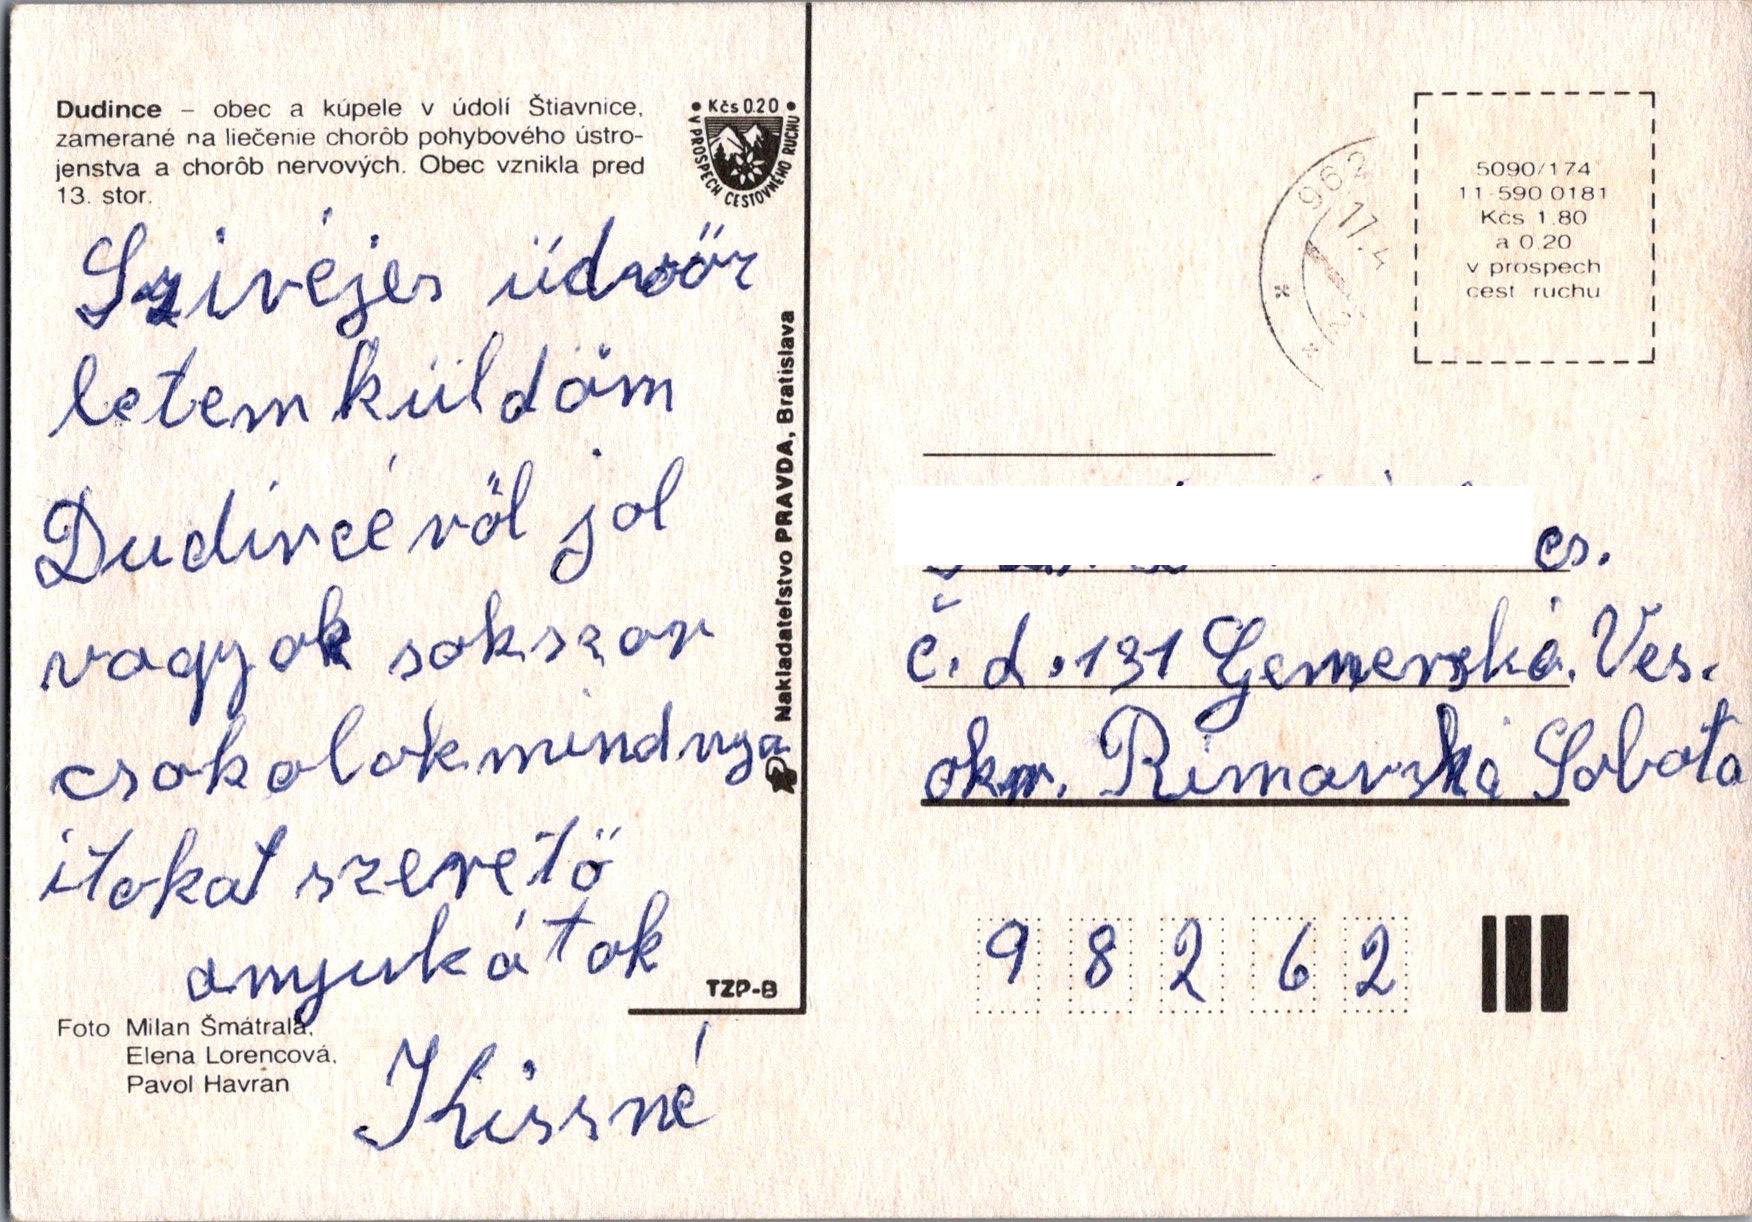 Dudince – obec a kúpele v údolí Štiavnice,
zamerané na liečenie chorôb pohybového ústro-
jenstva a chorôb nervových. Obec vznikla pred
13. stor.
• Kčs 0.20 •
V PROSPECH CESTOVNÉHO RUCHU
Szivéjes üdvör
letem küldöm
Dudincéről jol
vagyok sokszor
csokolok mindnya
itokat szerető
anyukátok
Kissné
Foto Milan Šmátrala,
Elena Lorencová,
Pavol Havran
TZP-B
Nakladateľstvo PRAVDA, Bratislava
962
17.4
5090/174
11-590 0181
Kčs 1.80
a 0.20
v prospech
cest ruchu
cs.
č. d. 131 Gemerská. Ves.
okr. Rimavská Sobota
98262